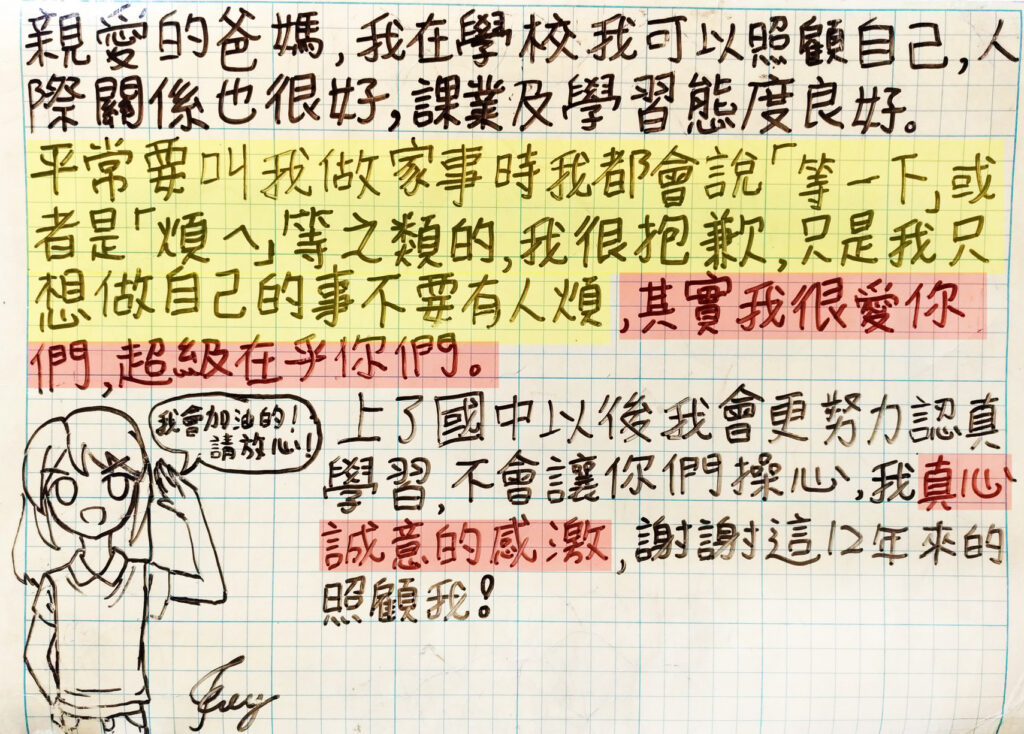 親愛的爸媽,我在學校我可以照顧自己,人
際關係也很好,課業及學習態度良好。
平常要叫我做家事時我都會說「等一下」或
者是「煩ㄟ」等之類的,我很抱歉,只是我只
想做自己的事不要有人煩,其實我很愛你
們,超級在乎你們。
我會加油的!
請放心!
上了國中以後我會更努力認真
學習,不會讓你們操心,我真心
誠意的感激,謝謝這12年來的
照顧我!